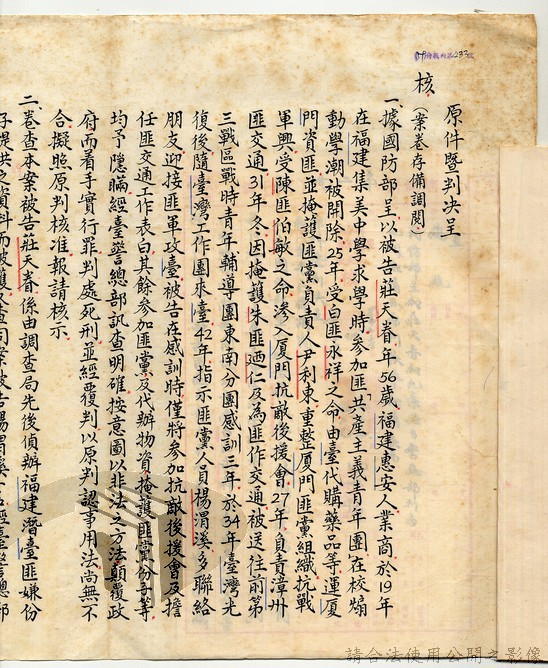 原件暨判決呈
核
(案卷存備調閱)
一、據國防部呈以被告莊天眷年56歲福建惠安人業商於19年
在福建集美中學求學時參加匪「共產主義青年團」在校煽
動學潮被開除25年受白匪永祥之命由臺代購藥品等運厦
門資匪並掩護匪黨負責人尹利東重整厦門匪黨組織抗戰
軍興受陳匪伯敏之命滲入厦門抗敵後援會27年負責漳州
匪交通31年冬因掩護朱匪迺仁及為匪作交通被送往前第
三戰區戰時青年輔導團東南分團感訓三年於34年臺灣光
復後隨臺灣工作團來臺42年指示匪黨人員楊渭溪多聯絡
朋友迎接匪軍攻臺被告在感訓時僅將參加抗敵後援會及擔
任匪交通工作表白其餘參加匪黨及代辦物資掩護匪黨份子等
均予隱瞞經臺警總部訊查明確按意圖以非法之方法顛覆政
府而着手實行罪判處死刑並經覆判以原判認事用法尚無不
合擬照原判核准報請核示
二、卷查本案被告莊天眷係由調查局先後偵辦福建潛臺匪嫌份
請合法使用公開之影像